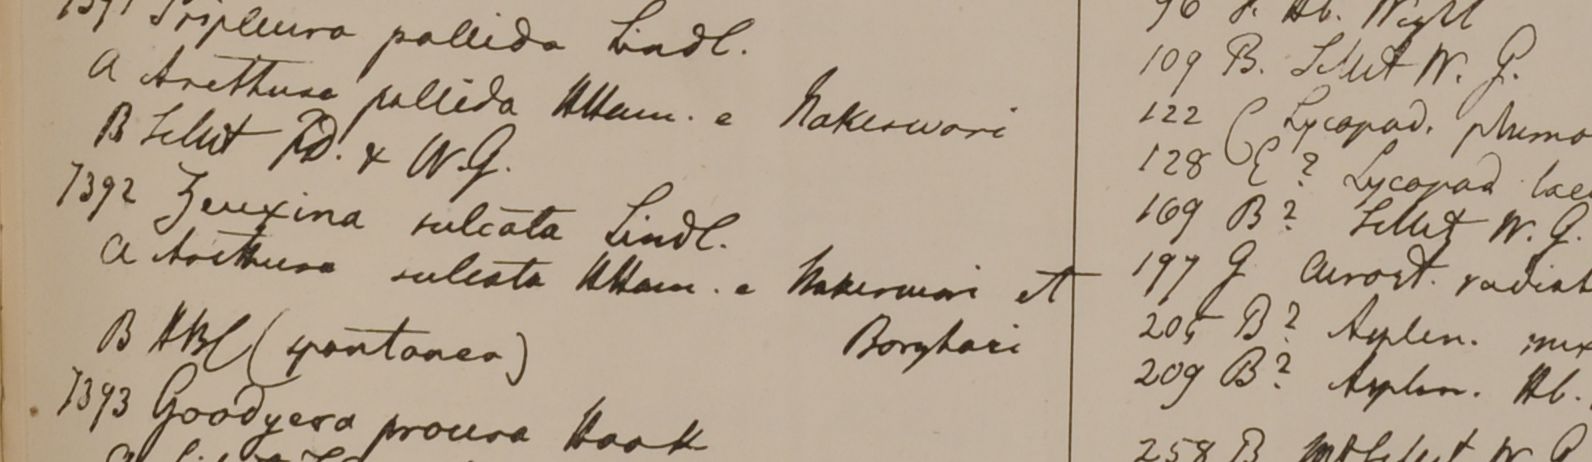 7391 Tripleura pallida Lindl.
a Arethusa pallida HHam. e Nakeswari
B Sillut FD. & W.G.
7392 Zeuxina sulcata Lindl.
a Arethusa sulcata HHam. e Nakeswari et
Borghari
B HBC (spontanea)
7393 Goodyera procera Hook
96 Hb. Wight
109 B. Sillet W. G.
122 Lycopod. plumo
128 E? Lycopod lae
169 B? Sillet W. G.
197 G radiat
205 B? Asplen. mix
209 B? Asplen. Hb.
258 B W G